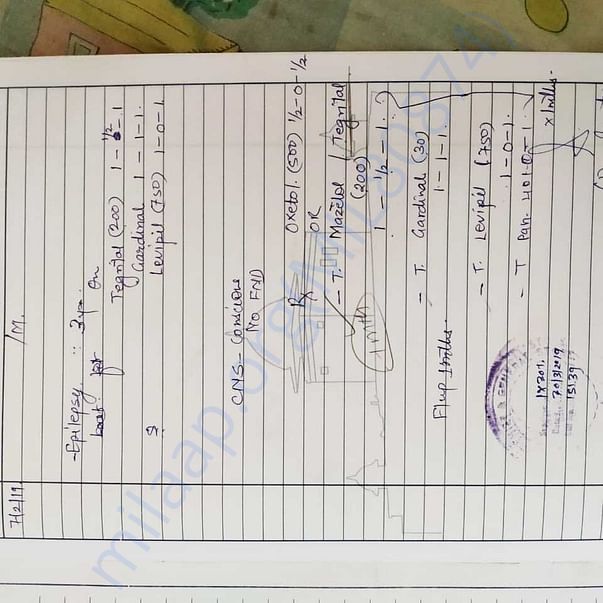 7/2/19
/M.
- Epilepsy :: 3yr.
on
Tegrital (200) 1 - 1/2 - 1
Gardinal 1 - 1 - 1.
Levipil (750) 1 - 0 - 1.
CNS - Conscious
No FND
Rx
Oxetol. (500) 1/2 - 0 - 1/2
OR
- T. Mazetol / Tegrital
(200)
1 - 1/2 - 1.
1 mth
- T. Gardinal (30)
1 - 1 - 1.
F/up 1 mths.
- T. Levipil (750)
1 - 0 - 1.
- T Pan. 40 1 - 0 - 1.
x 1 mths.
1X701.
15:39
milaap.org